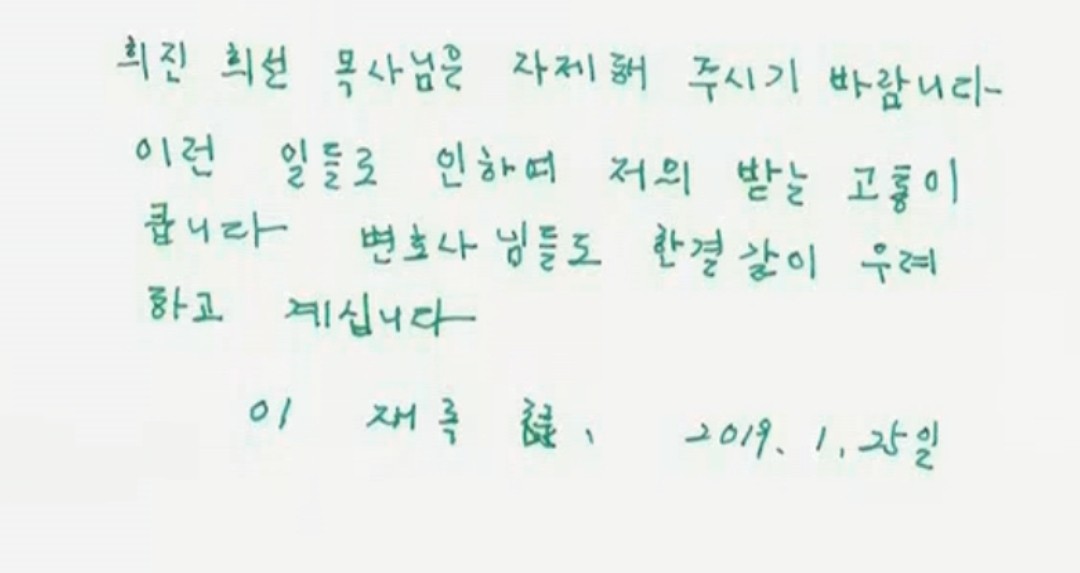 희진 희선 목사님은 자제해 주시기 바랍니다
이런 일들로 인하여 저의 받는 고통이
큽니다 변호사님들도 한결같이 우려
하고 계십니다
이 재록 2019. 1. 25일